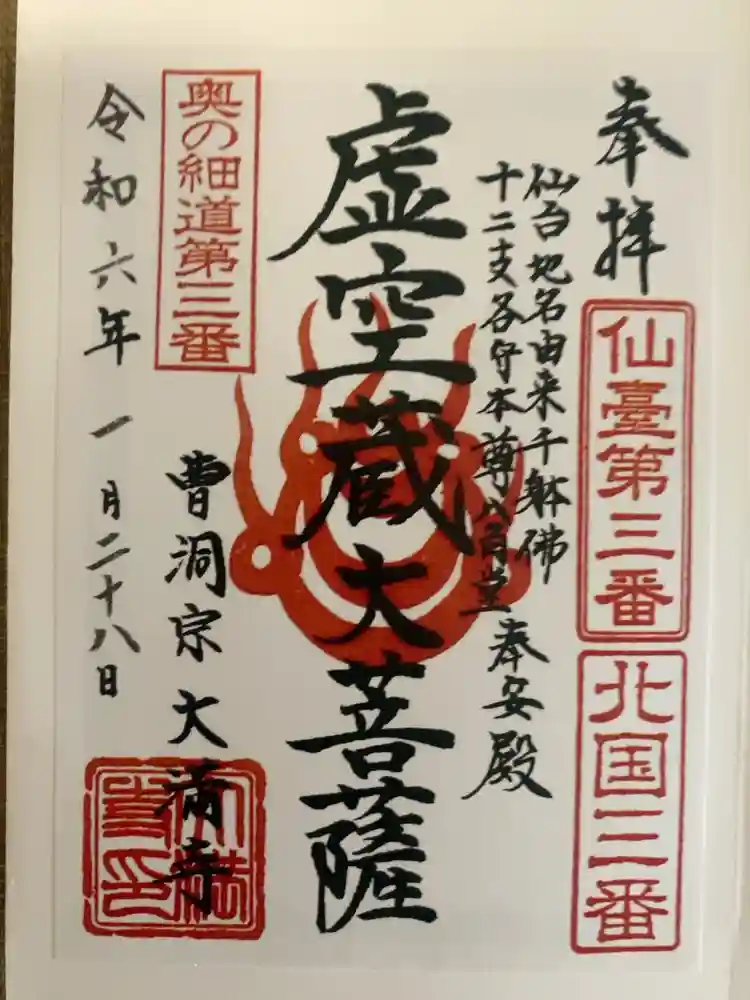 奉拝
仙臺第三番
北国三番
仙台地名由来千躰佛
十二支各守本尊八角堂奉安殿
虚空蔵大菩薩
奥の細道第三番
曹洞宗大満寺
令和六年一月二十八日